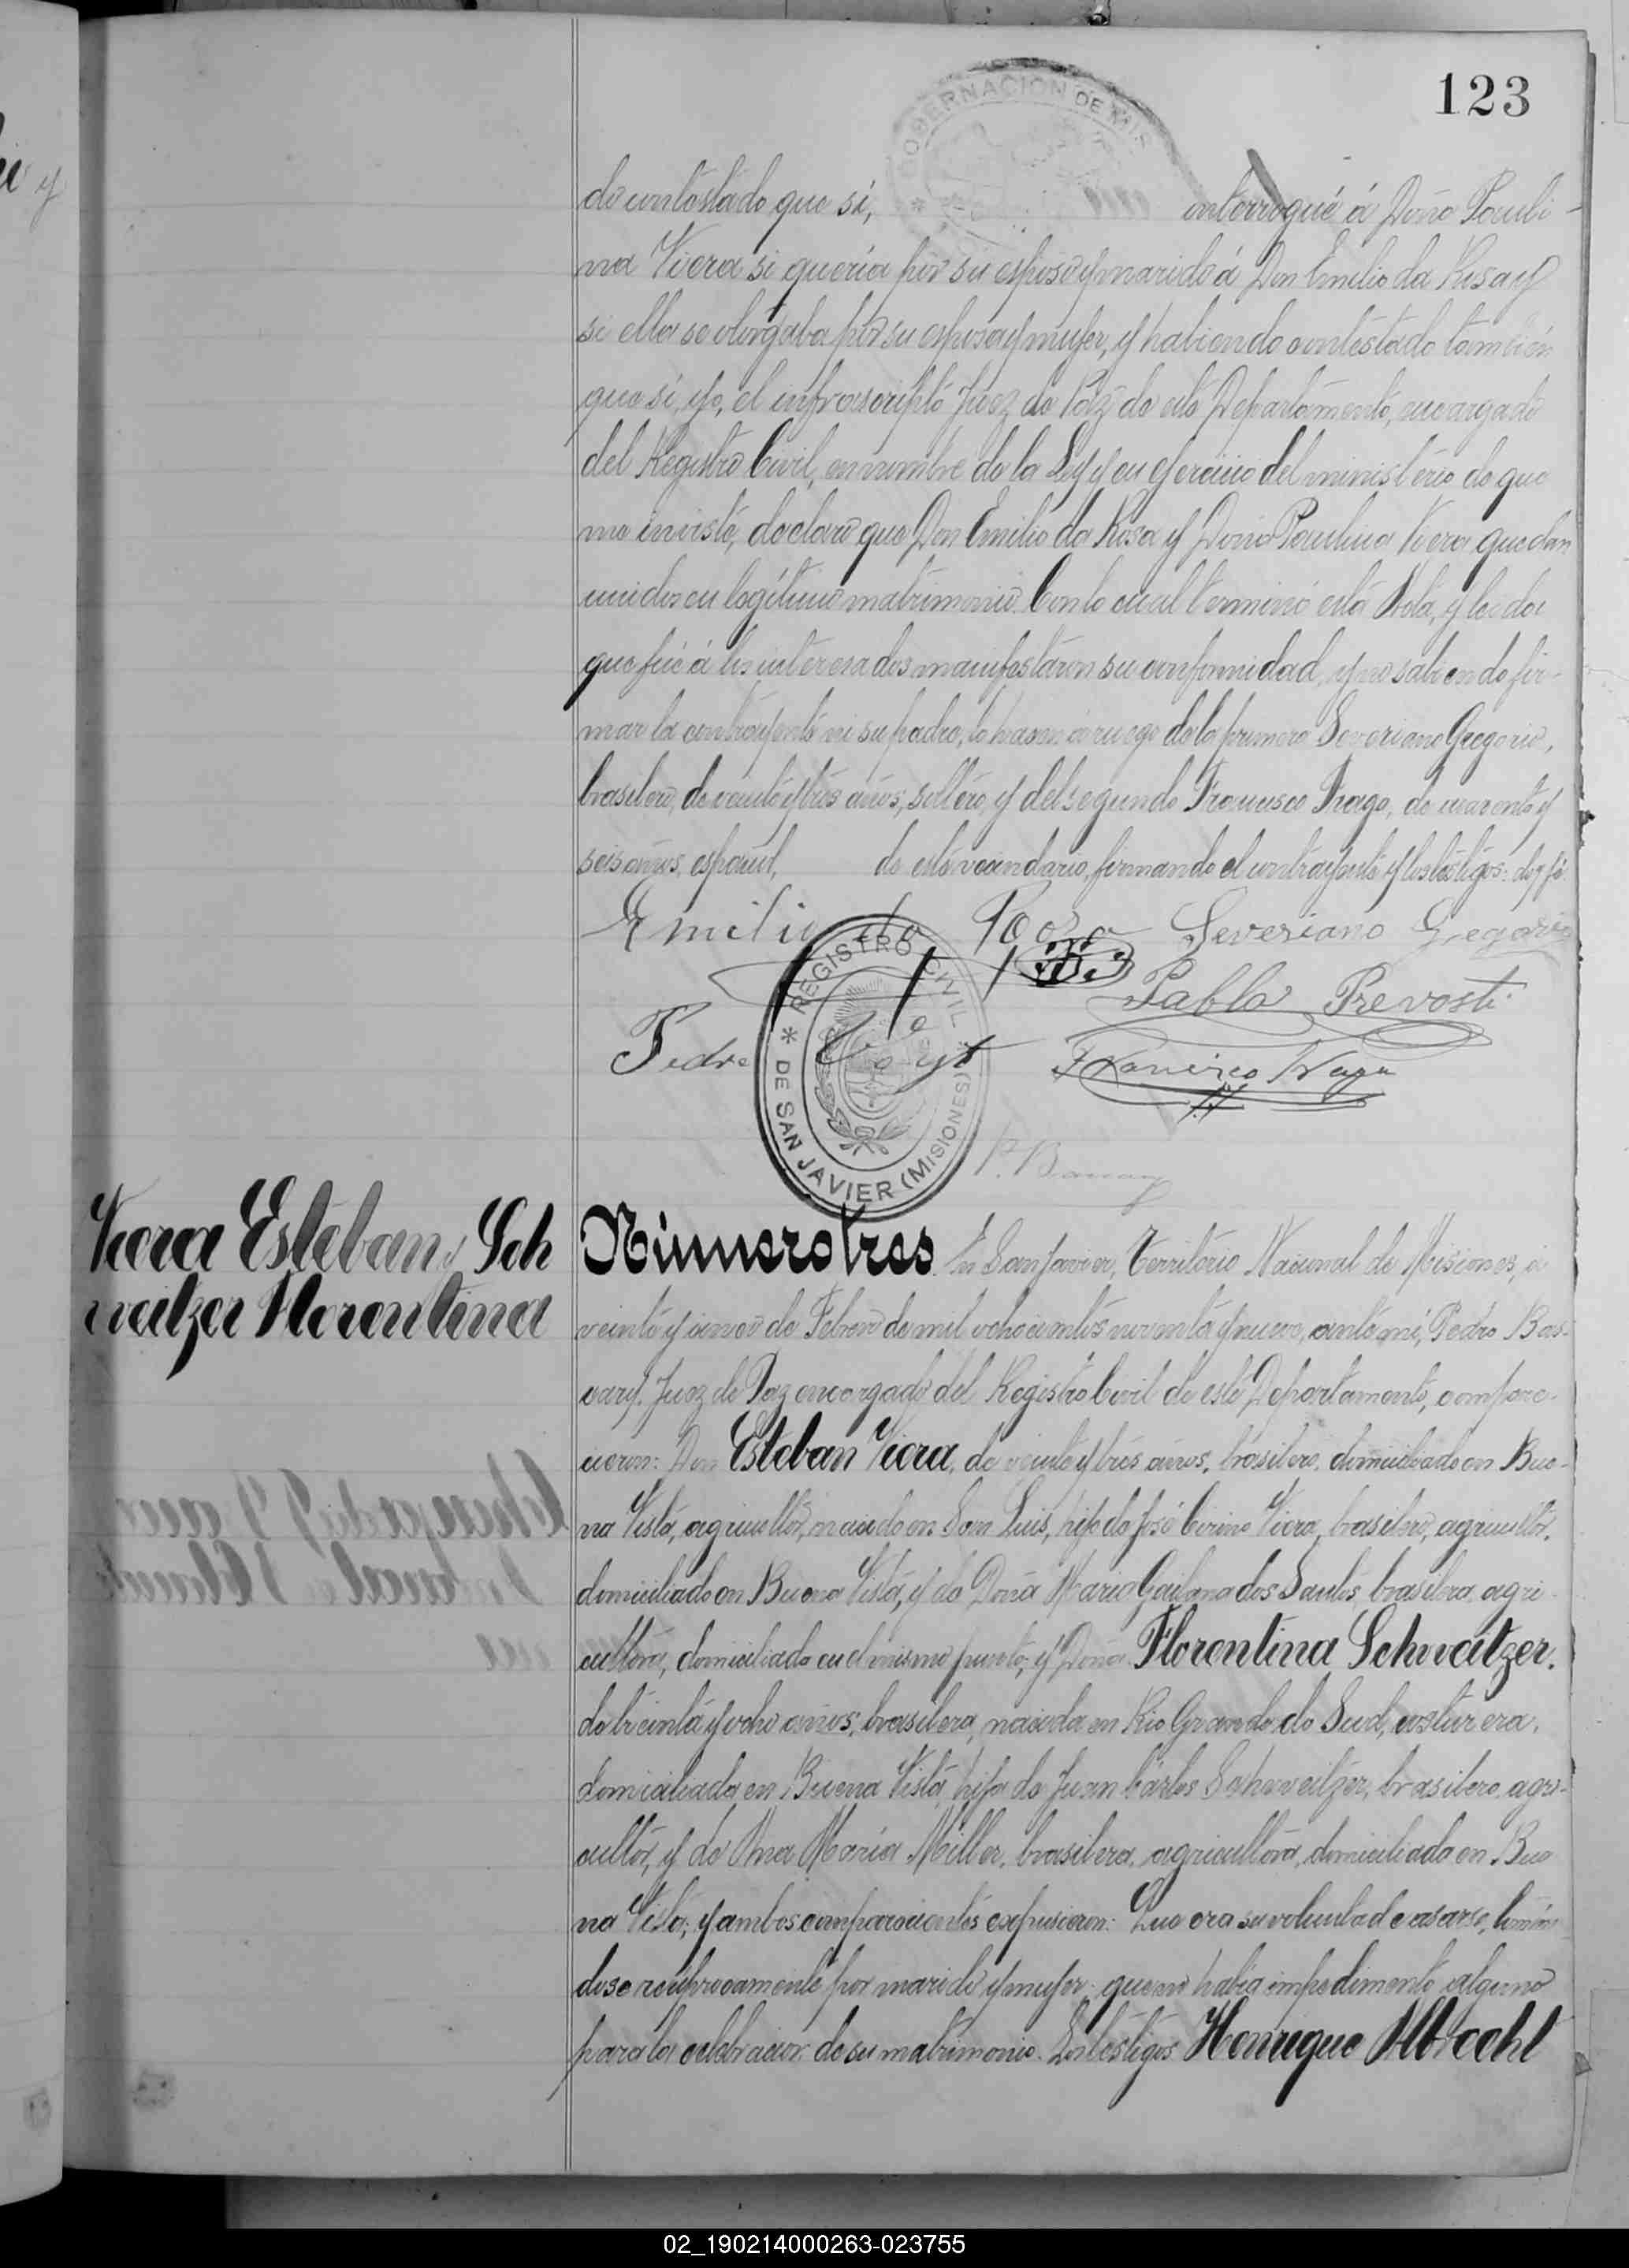 123
GOBERNACION DE MIS
do contestado que si, interrogué á Doña Pauli-
na Viera si queria por su esposo y marido á Don Emilio da Rosa y
si ella se otorgaba por su esposa y mujer, y habiendo contestado tambien
que si, yo, el infrascripto Juez de Paz de este Departamento, encargado
del Registro Civil, en nombre de la Ley y en ejercicio del ministerio de que
me inviste, declaro que Don Emilio da Rosa y Doña Paulina Viera quedan
unidos en legítimo matrimonio. Con lo cual terminó esta Acta, y leida
que fué á los interesados manifestaron su conformidad, y no sabiendo fir-
mar la contrayente ni su padre, lo hacen á ruego de la primera Severiano Gregorio,
brasilero, de veinte y tres años, soltero, y del segundo Francisco Fraga, de cuarenta y
seis años, español, de este vecindario, firmando el contrayente y los testigos: doy fé.
Emilio da Rosa Severiano Gregorio
Pablo Prevosti
Pedro Francisco Fraga
REGISTRO CIVIL
DE SAN JAVIER (MISIONES)
P. Bascary
Viera Esteban y Sch
weitzer Florentina
Número tres. En San Javier, Territorio Nacional de Misiones, á
veinte y cinco de Febrero de mil ochocientos noventa y nueve, ante mi, Pedro Bas-
cary, Juez de Paz encargado del Registro Civil de este Departamento, compare-
cieron: Don Esteban Viera, de veinte y tres años, brasilero, domiciliado en Bue-
na Vista, agricultor, nacido en San Luis, hijo de José Cirino Viera, brasilero, agricultor,
domiciliado en Buena Vista, y de Doña Maria dos Santos, brasilera, agri-
cultora, domiciliada en el mismo punto; y Doña Florentina Schweitzer,
de treinta y ocho años, brasilera, nacida en Rio Grande do Sud, costurera,
domiciliada en Buena Vista, hija de Juan Cárlos Schweitzer, brasilero, agri-
cultor, y de Ana Maria Miller, brasilera, agricultora, domiciliada en Bue
na Vista; y ambos comparecientes expusieron: Que era su voluntad casarse, tomán
dose recíprocamente por marido y mujer; que no habia impedimento alguno
para la celebracion de su matrimonio. Los testigos Henrique Albrecht
02_190214000263-023755